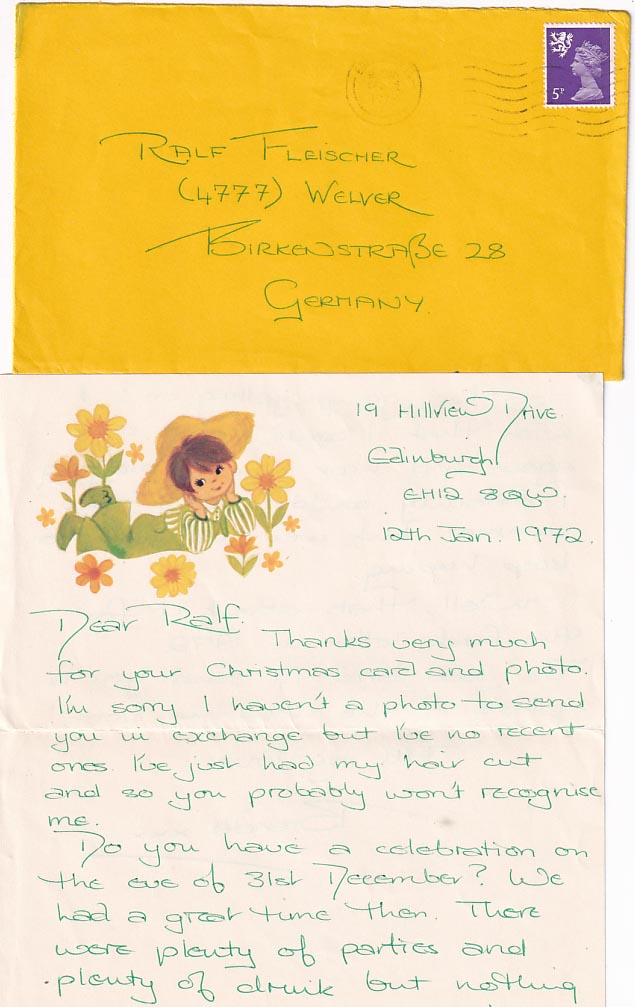 5P
RALF FLEISCHER
(4777) WELVER
BIRKENSTRAßE 28
GERMANY.
19 Hillview Drive.
Edinburgh
EH12 8QW.
12th Jan. 1972.
Dear Ralf.
Thanks very much
for your Christmas card and photo.
I'm sorry I haven't a photo to send
you in exchange but I've no recent
ones. I've just had my hair cut
and so you probably won't recognise
me.
Do you have a celebration on
the eve of 31st December? We
had a great time then. There
were plenty of parties and
plenty of drink but nothing